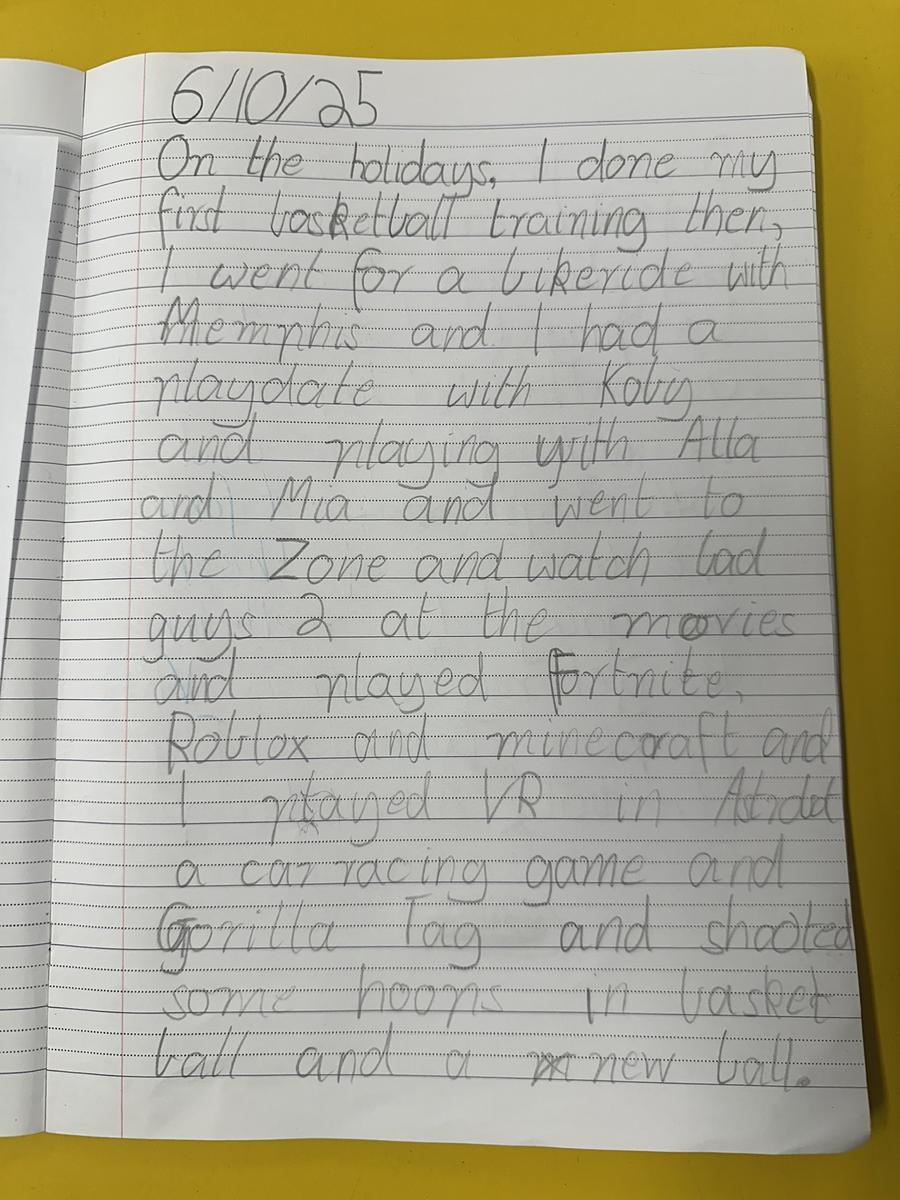 6/10/25
On the holidays, I done my
first basketball training then,
I went for a bikeride with
Memphis and I had a
playdate with Koby
and playing with Alla
and Mia and went to
the Zone and watch bad
guys 2 at the movies
and played Fortnite,
Roblox and minecraft and
I played VR in
a car racing game and
Gorilla Tag and shooted
some hoops in basket
ball and a new ball.